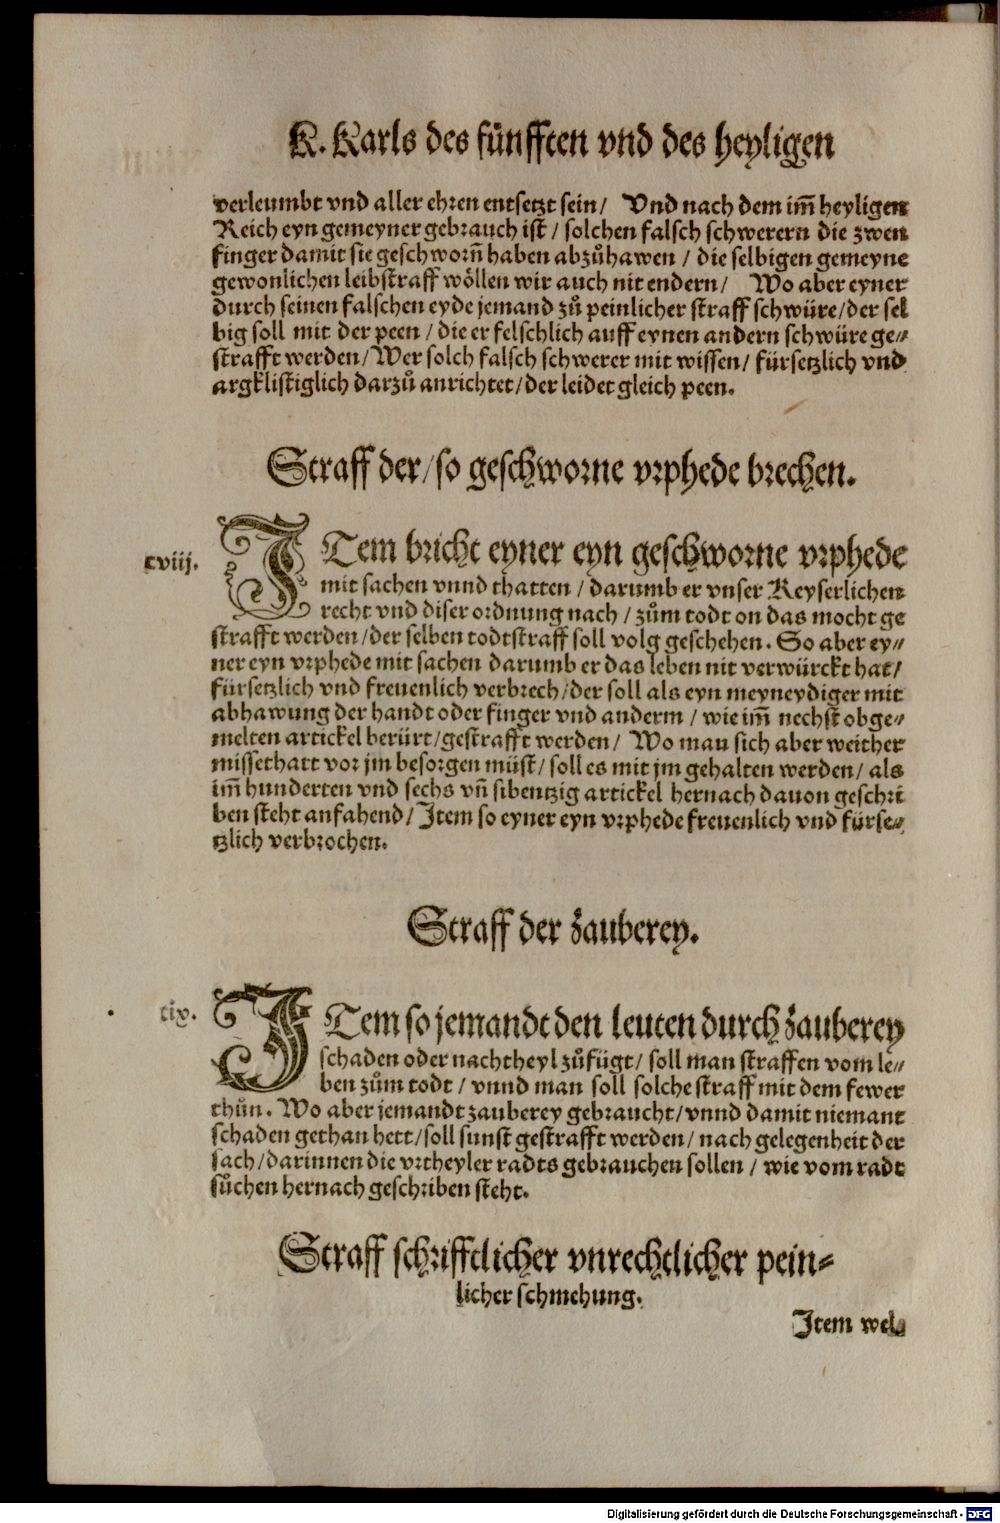 K. Karls des fünfften vnd des heyligen
verleumbt vnd aller ehren entsetzt sein / Vnd nach dem im̃ heyligen
Reich eyn gemeyner gebrauch ist / solchen falsch schwerern die zwen
finger damit sie geschworñ haben abzůhawen / die selbigen gemeyne
gewonlichen leibstraff wöllen wir auch nit endern / Wo aber eyner
durch seinen falschen eyde jemand zů peinlicher straff schwüre / der sel
big soll mit der peen / die er felschlich auff eynen andern schwüre ge⸗
strafft werden / Wer solch falsch schwerer mit wissen / fürsetzlich vnd
argklistiglich darzů anrichtet / der leidet gleich peen.
Straff der / so geschworne vrphede brechen.
cviij.
ITem bricht eyner eyn geschworne vrphede
mit sachen vnnd thatten / darumb er vnser Keyserlichen
recht vnd diser ordnung nach / zům todt on das mocht ge
strafft werden / der selben todtstraff soll volg geschehen. So aber ey⸗
ner eyn vrphede mit sachen darumb er das leben nit verwürckt hat /
fürsetzlich vnd freuenlich verbrech / der soll als eyn meyneydiger mit
abhawung der handt oder finger vnd anderm / wie im̃ nechst obge⸗
melten artickel berürt / gestrafft werden / Wo man sich aber weither
missethatt vor jm besorgen müst / soll es mit jm gehalten werden / als
im̃ hunderten vnd sechs vñ sibentzig artickel hernach dauon geschri
ben steht anfahend / Item so eyner eyn vrphede freuenlich vnd fürse⸗
tzlich verbrochen.
Straff der zauberey.
cix.
ITem so jemandt den leuten durch zauberey
schaden oder nachtheyl zůfügt / soll man straffen vom le⸗
ben zům todt / vnnd man soll solche straff mit dem fewer
thůn. Wo aber jemandt zauberey gebraucht / vnnd damit niemant
schaden gethan hett / soll sunst gestrafft werden / nach gelegenheit der
sach / darinnen die vrtheyler radts gebrauchen sollen / wie vom radt
sůchen hernach geschriben steht.
Straff schrifftlicher vnrechtlicher pein⸗
licher schmehung.
Item wel⸗
Digitalisierung gefördert durch die Deutsche Forschungsgemeinschaft - DFG